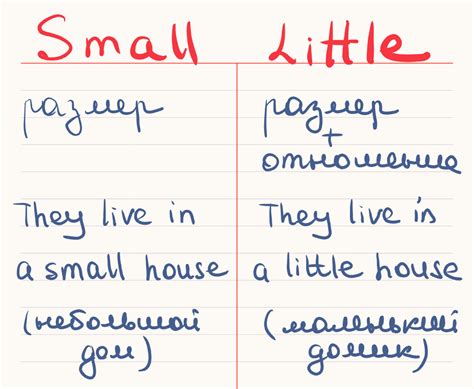 Small
размер
They live in
a small house
(небольшой
дом)
Little
размер
+
отношение
They live in
a little house
(маленький
домик)